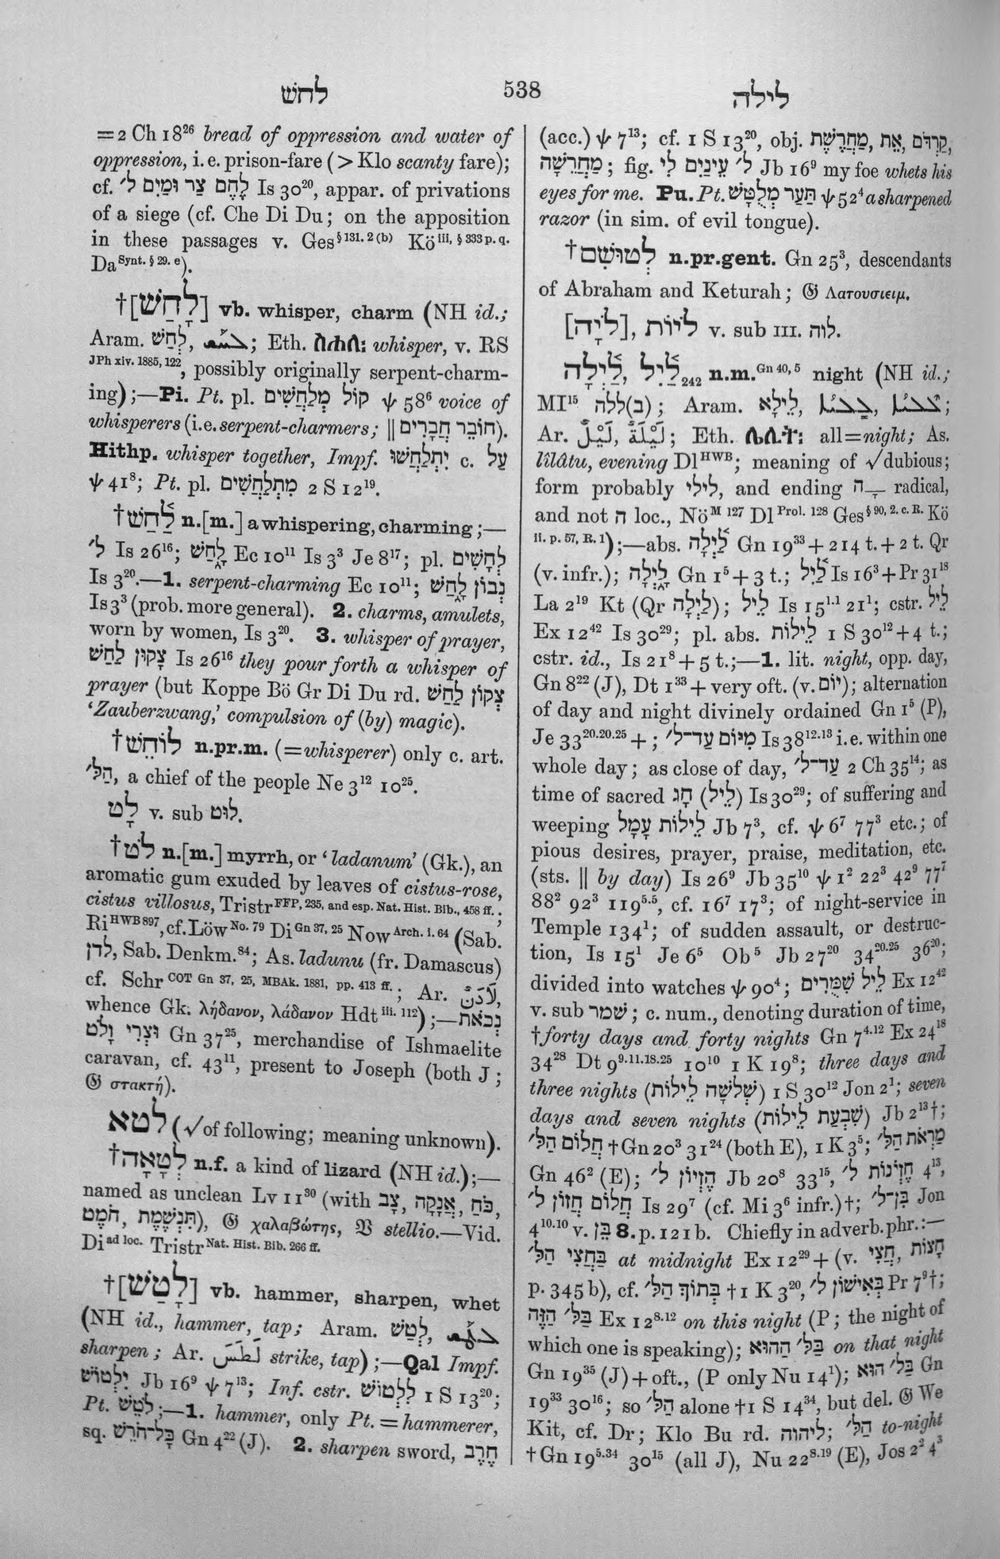 לחשׁ
538
לילה
=2 Ch 18²⁶ bread of oppression and water of
oppression, i.e. prison-fare (> Klo scanty fare);
cf. לֶחֶם צַר וּמַיִם ל׳ Is 30²⁰, appar. of privations
of a siege (cf. Che Di Du; on the apposition
in these passages v. Ges§ 131. 2 (b) Köiii, § 333 p. q.
DaSynt. § 29. e).
†[לָחַשׁ] vb. whisper, charm (NH id.;
Aram. לְחַשׁ, ; Eth. ለሐሰ: whisper, v. RS
JPh xiv. 1885, 122, possibly originally serpent-charm-
ing);—Pi. Pt. pl. קוֹל מְלַחֲשִׁים ψ 58⁶ voice of
whisperers (i.e. serpent-charmers; || חוֹבֵר חֲבָרִים).
Hithp. whisper together, Impf. יִתְלַחֲשׁוּ c. עַל
ψ 41⁸; Pt. pl. מִתְלַחֲשִׁים 2 S 12¹⁹.
†לַחַשׁ n.[m.] a whispering, charming;—
ל׳ Is 26¹⁶; לָחַשׁ Ec 10¹¹ Is 3³ Je 8¹⁷; pl. לְחָשִׁים
Is 3²⁰.—1. serpent-charming Ec 10¹¹; נְבוֹן לָחַשׁ
Is 3³ (prob. more general). 2. charms, amulets,
worn by women, Is 3²⁰. 3. whisper of prayer,
צָקוּן לַחַשׁ Is 26¹⁶ they pour forth a whisper of
prayer (but Koppe Bö Gr Di Du rd. צְקוֹן לַחַשׁ
‘Zauberzwang,’ compulsion of (by) magic).
†לוֹחֵשׁ n.pr.m. (=whisperer) only c. art.
הַלּ׳, a chief of the people Ne 3¹² 10²⁵.
לָט v. sub לוּט.
†לֹט n.[m.] myrrh, or ‘ladanum’ (Gk.), an
aromatic gum exuded by leaves of cistus-rose,
cistus villosus, TristrFFP, 235, and esp. Nat. Hist. Bib., 458 ff.;
RiHWB 897, cf. LöwNo. 79 DiGn 37, 25 NowArch. i. 64 (Sab.
לדן, Sab. Denkm.⁸⁴; As. ladunu (fr. Damascus)
cf. SchrCOT Gn 37, 25, MBAk. 1881, pp. 413 ff.; Ar. لَاذَنٌ,
whence Gk. λήδανον, λάδανον Hdtiii. 112);—נְכֹאת
וּצְרִי וָלֹט Gn 37²⁵, merchandise of Ishmaelite
caravan, cf. 43¹¹, present to Joseph (both J;
𝔊 στακτή).
לטא (√of following; meaning unknown).
†לְטָאָה n.f. a kind of lizard (NH id.);—
named as unclean Lv 11³⁰ (with כֹּחַ, אֲנָקָה, צָב
תִּנְשֶׁמֶת, חֹמֶט), 𝔊 χαλαβώτης, 𝔙 stellio.—Vid.
Diad loc. TristrNat. Hist. Bib. 266 ff.
†[לָטַשׁ] vb. hammer, sharpen, whet
(NH id., hammer, tap; Aram. לְטַשׁ,
sharpen; Ar. لَطَسَ strike, tap);—Qal Impf.
יִלְטוֹשׁ Jb 16⁹ ψ 7¹³; Inf. cstr. לִלְטוֹשׁ 1 S 13²⁰;
Pt. לֹטֵשׁ;—1. hammer, only Pt. = hammerer,
sq. כָּל־חֹרֵשׁ Gn 4²² (J). 2. sharpen sword, חֶרֶב
(acc.) ψ 7¹³; cf. 1 S 13²⁰, obj. מַחֲרֶשֶׁת, אֵת, קַרְדֹּם,
מַחֲרֵשָׁה; fig. ל׳ עֵינַיִם לִי Jb 16⁹ my foe whets his
eyes for me. Pu. Pt. תַּעַר מְלֻטָּשׁ ψ 52⁴ a sharpened
razor (in sim. of evil tongue).
†לְטוּשִׁם n.pr.gent. Gn 25³, descendants
of Abraham and Keturah; 𝔊 Λατουσιειμ.
[לִיָּה], לֹיוֹת v. sub III. לוה.
לַיִל, לַיְלָה 242 n.m.Gn 40, 5 night (NH id.;
MI¹⁵ (ב)ללה; Aram. לֵילְיָא, ;
Ar. لَيْلٌ, لَيْلَةٌ; Eth. ሌሊት: all=night; As.
lîlâtu, evening DlHWB; meaning of √dubious;
form probably לילי, and ending ־ָה radical,
and not ה loc., NöM 127 DlProl. 128 Ges§ 90, 2. c. R. Kö
ii. p. 57, R. 1);—abs. לַיְלָה Gn 19³³ + 214 t. + 2 t. Qr
(v. infr.); לָיְלָה Gn 1⁵ + 3 t.; לַיִל Is 16³ + Pr 31¹⁸
La 2¹⁹ Kt (Qr לַיְלָה); לֵיל Is 15¹·¹ 21¹; cstr. לֵיל
Ex 12⁴² Is 30²⁹; pl. abs. לֵילוֹת 1 S 30¹² + 4 t.;
cstr. id., Is 21⁸ + 5 t.;—1. lit. night, opp. day,
Gn 8²² (J), Dt 1³³ + very oft. (v. יוֹם); alternation
of day and night divinely ordained Gn 1⁵ (P),
Je 33²⁰·²⁰·²⁵ + ; מִיּוֹם עַד־ל׳ Is 38¹²·¹³ i.e. within one
whole day; as close of day, עַד־ל׳ 2 Ch 35¹⁴; as
time of sacred חַג (לֵיל) Is 30²⁹; of suffering and
weeping לֵילוֹת עָמָל Jb 7³, cf. ψ 6⁷ 77³ etc.; of
pious desires, prayer, praise, meditation, etc.
(sts. || by day) Is 26⁹ Jb 35¹⁰ ψ 1² 22³ 42⁹ 77⁷
88² 92³ 119⁵·⁵, cf. 16⁷ 17³; of night-service in
Temple 134¹; of sudden assault, or destruc-
tion, Is 15¹ Je 6⁵ Ob⁵ Jb 27²⁰ 34²⁰·²⁵ 36²⁰;
divided into watches ψ 90⁴; לֵיל שִׁמֻּרִים Ex 12⁴²
v. sub שׁמר; c. num., denoting duration of time,
†forty days and forty nights Gn 7⁴·¹² Ex 24¹⁸
34²⁸ Dt 9⁹·¹¹·¹⁸·²⁵ 10¹⁰ 1 K 19⁸; three days and
three nights (שְׁלשָׁה לֵילוֹת) 1 S 30¹² Jon 2¹; seven
days and seven nights (שִׁבְעַת לֵילוֹת) Jb 2¹³†;
חֲלוֹם הַלּ׳ †Gn 20³ 31²⁴ (both E), 1 K 3⁵; מַרְאֹת הַלּ׳
Gn 46² (E); חֶזְיוֹן ל׳ Jb 20⁸ 33¹⁵, חֶזְיֹנוֹת ל׳ 4¹³,
חֲלוֹם חֲזוֹן ל׳ Is 29⁷ (cf. Mi 3⁶ infr.)†; בִּן־ל׳ Jon
4¹⁰·¹⁰ v. בֵּן 8. p. 121 b. Chiefly in adverb. phr.:—
בַּחֲצִי הַלּ׳ at midnight Ex 12²⁹ + (v. חֲצִי, חָצוֹת
p. 345 b), cf. בְּתוֹךְ הַלּ׳ †1 K 3²⁰, בְּאִישׁוֹן ל׳ Pr 7⁹†;
בַּלּ׳ הַזֶּה Ex 12⁸·¹² on this night (P; the night of
which one is speaking); בַּלּ׳ הַהוּא on that night
Gn 19³⁵ (J) + oft., (P only Nu 14¹); בַּלּ׳ הוּא Gn
19³³ 30¹⁶; so הַלּ׳ alone †1 S 14³⁴, but del. 𝔊 We
Kit, cf. Dr; Klo Bu rd. ליהוה; הַלּ׳ to-night
†Gn 19⁵·³⁴ 30¹⁵ (all J), Nu 22⁸·¹⁹ (E), Jos 2² 4³